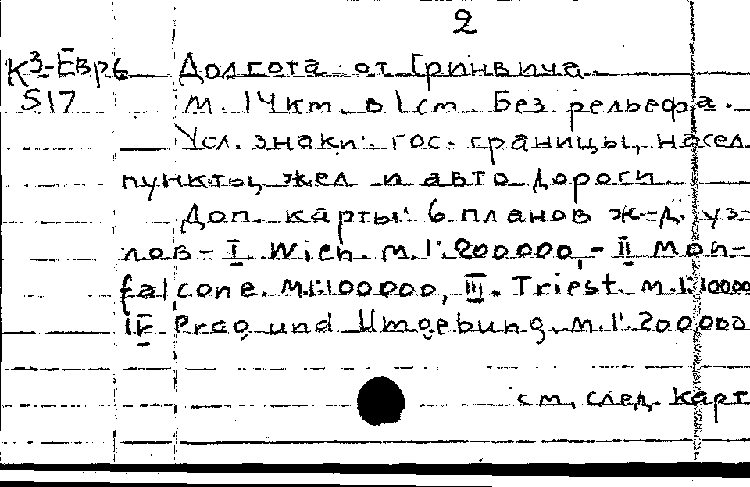 2
К3-Евр6 Долгота от Гринвича
S17 м. 14км. в 1см Без рельефа.
Усл. знаки: гос. границы, насел
пункты, жел и авто дороги.
Доп. карты: 6 планов ж-д. уз-
лов - I. Wien. м.1:200000, - II Mon-
falcone. м1:100000, III. Triest. м.1:100000
IV Prag und Umgebung. м.1:200000
см. след. карт